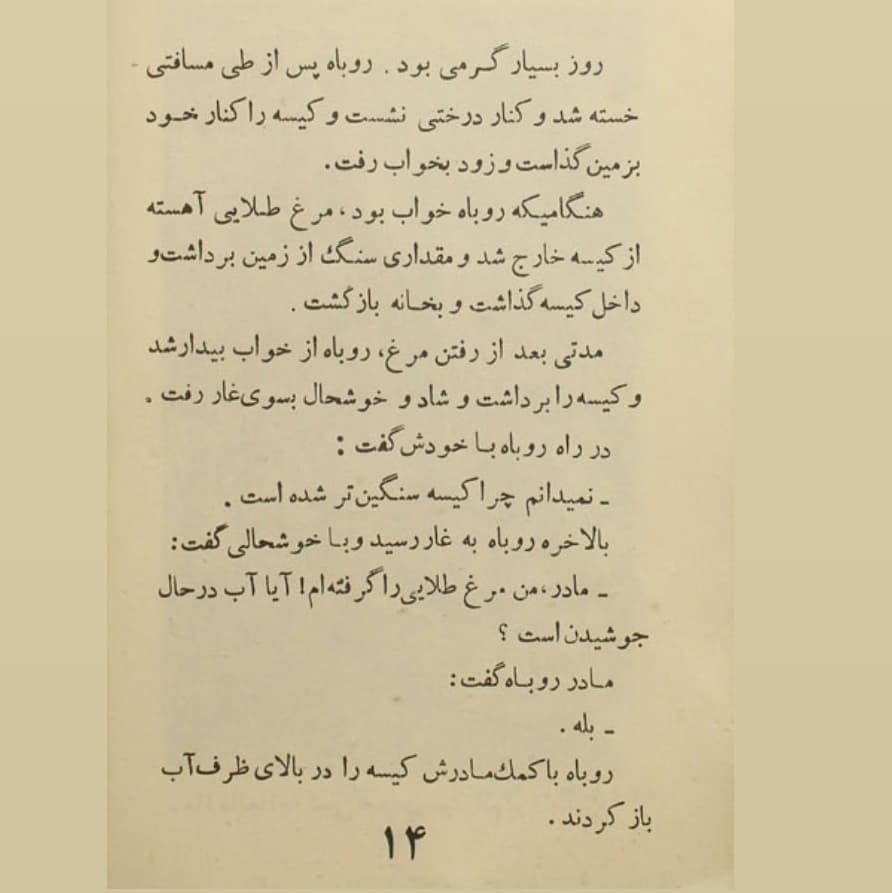 روز بسیار گرمی بود . روباه پس از طی مسافتی -
خسته شد و کنار درختی نشست و کیسه را کنار خود
بزمین گذاست و زود بخواب رفت.
هنگامیکه روباه خواب بود، مرغ طلایی آهسته
از کیسه خارج شد و مقداری سنگ از زمین برداشت و
داخل کیسه گذاشت و بخانه بازگشت .
مدتی بعد از رفتن مرغ، روباه از خواب بیدار شد
و کیسه را برداشت و شاد و خوشحال بسوی غار رفت .
در راه روباه با خودش گفت :
ـ نمیدانم چرا کیسه سنگین‌تر شده است .
بالاخره روباه به غار رسید و با خوشحالی گفت:
ـ مادر، من مرغ طلایی را گرفته‌ام! آیا آب درحال
جوشیدن است ؟
مادر روباه گفت:
ـ بله .
روباه با کمك مادرش کیسه را در بالای ظرف آب
باز کردند .
۱۴